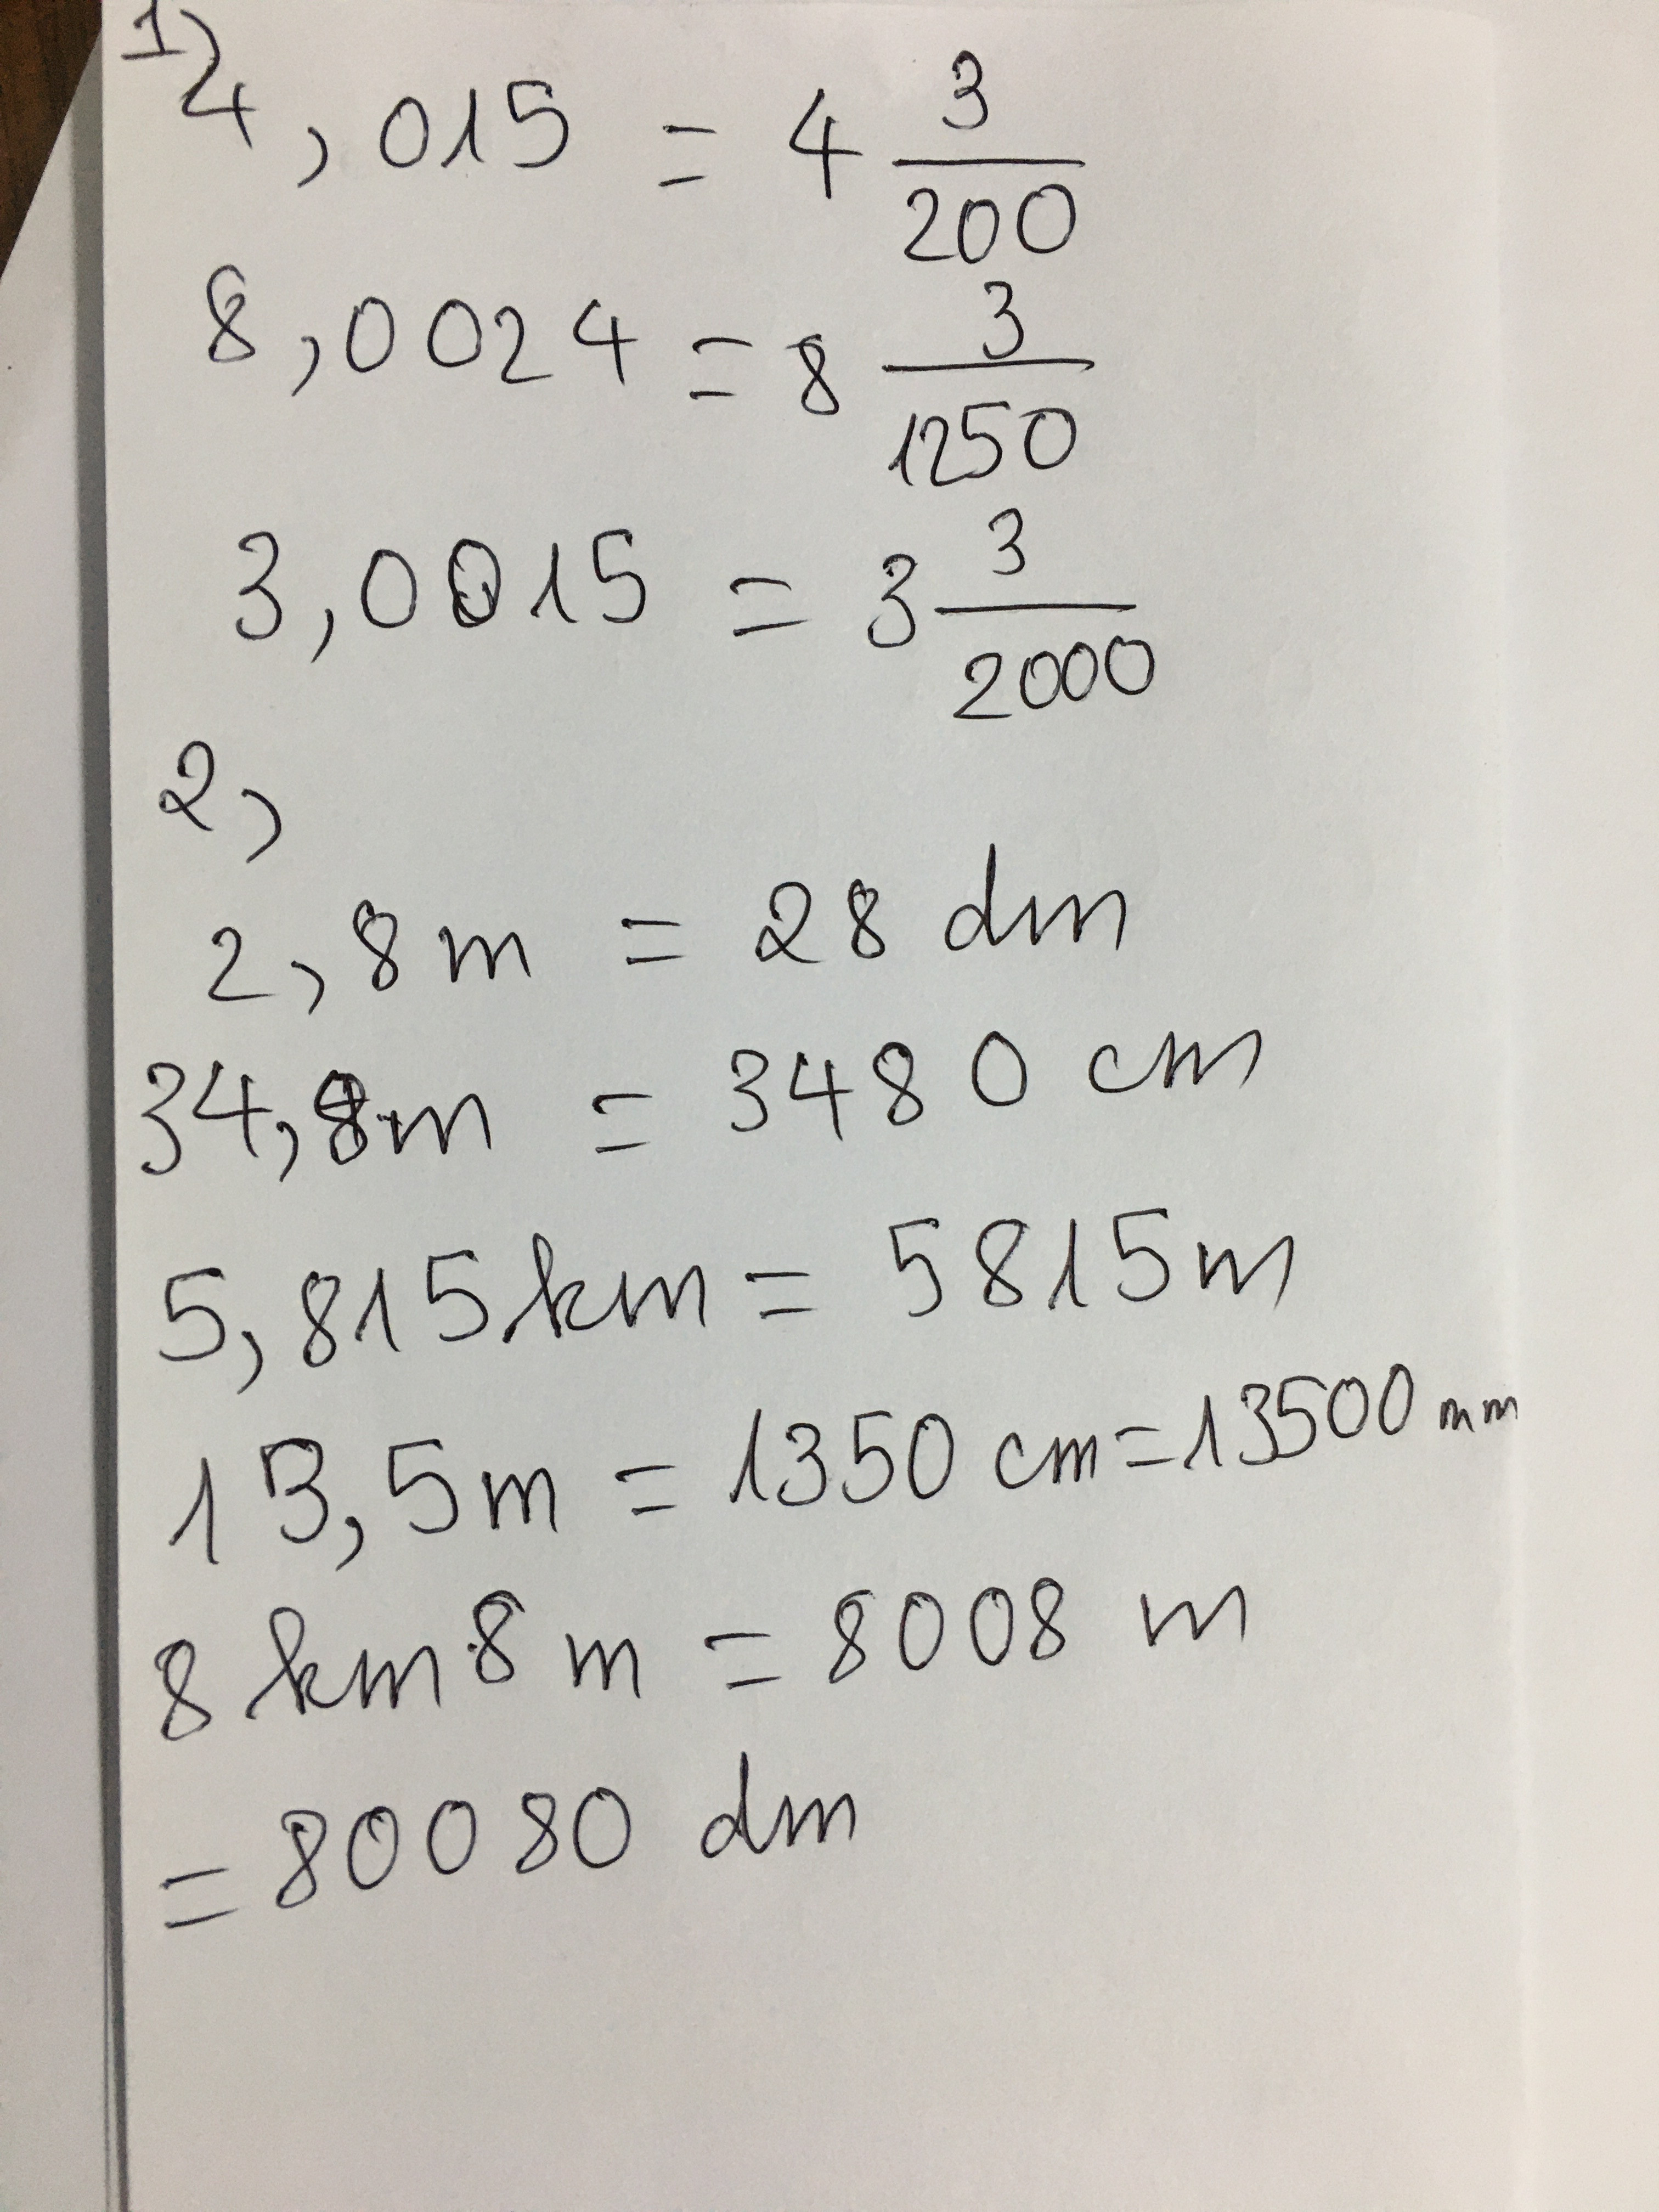 1)
4,015 = 4 3/200
8,0024 = 8 3/1250
3,0015 = 3 3/2000
2,
2,8m = 28 dm
34,8m = 3480 cm
5,815km = 5815m
13,5m = 1350 cm = 13500 mm
8 km 8 m = 8008 m
= 80080 dm